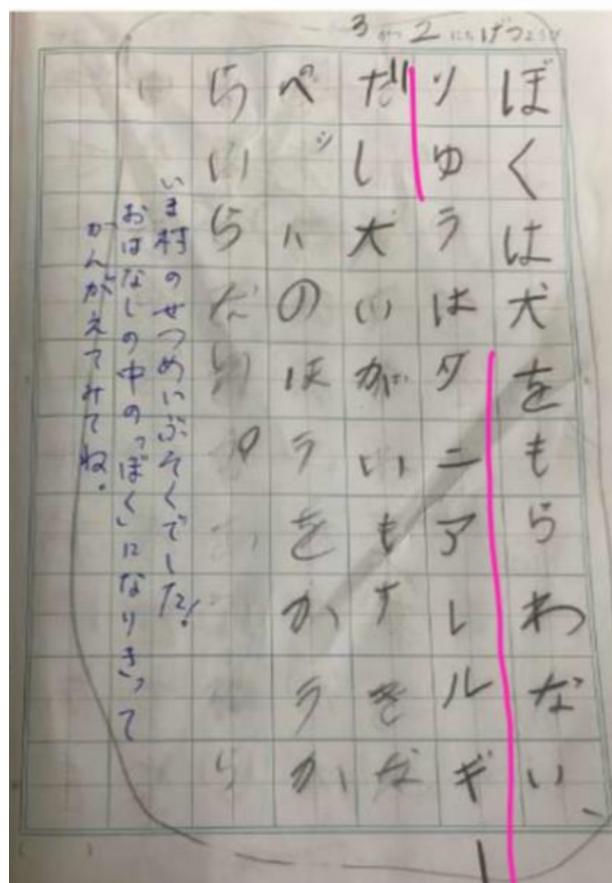 3がつ2にちげつようび
ぼくは犬をもらわない
リゆうはダニアレルギー
だし犬いがいもすきな
ペットのほうをかうか
ら
いま村のせつめいぶそくでした!
おはなしの中の「ぼく」になりきって
かんがえてみてね。